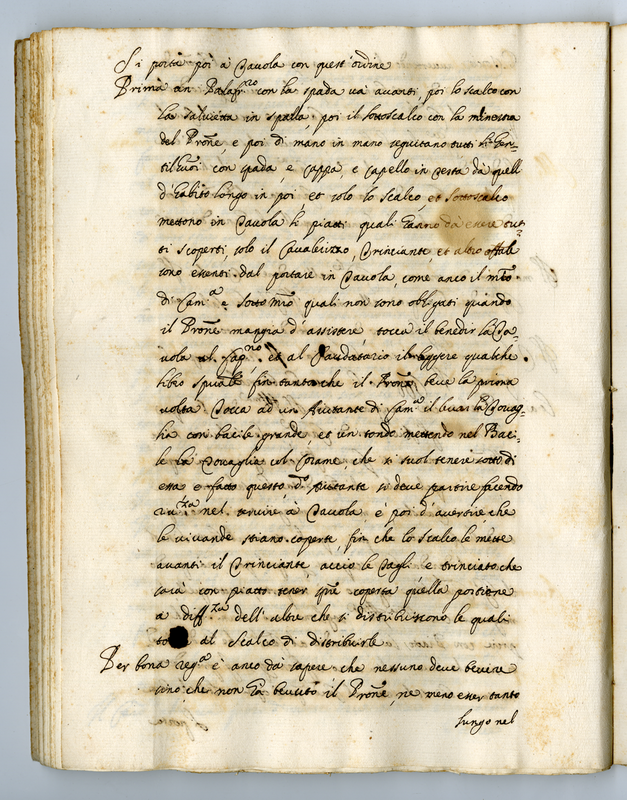 Si porta poi à Tavola con quest'ordine
Prima un Palafr.ro con la spada và avanti, poi lo scalco con
la salvietta in spalla, poi il sottoscalco con la minestra
del Prōne e poi di mano in mano seguitano tutti li Gen-
til'huōi con spada e cappa, e capello in testa da quelli
d'habito longo in poi, et solo lo scalco, et sottoscalco
mettono in Tavola li piatti quali hanno da essere tut-
ti scoperti, solo il Cavalerizzo, Trinciante, et altro offitiale
sono esenti dal portare in Tavola, come anco il m̄ro
di Cam.a e sotto m̄ro quali non sono obligati quando
il Prōne mangia d'assistere tocca il benedir la Ta-
vola al Cap.no et al Caudatario il leggere qualche
libro spūale fin tanto che il Prōne beve la prima
volta. Tocca ad un Aiutante di Cam.a il levar la Tovag-
lia con bacile grande, et un tondo mettendo nel Baci-
le la Tovaglia col Corame, che si suol tenere sotto di
essa e fatto questo, d.o Aiutante si deve partire facendo
riv.za nel servire à Tavola, è poi d'avertire, che
le vivande stiano coperte, fin che lo scalco le mette
avanti il Trinciante, acciò le tagli e trinciato che
sarà con piatto tener sp̄re coperta quella portione
a diff.za dell'altre che si distribuiscono le quali
al scalco di distribuirle
Per bona reg.a è anco da sapere che nessuno deve bevere
sino, che non hà beuuto il Prōne, ne meno esser tanto
lungo nel